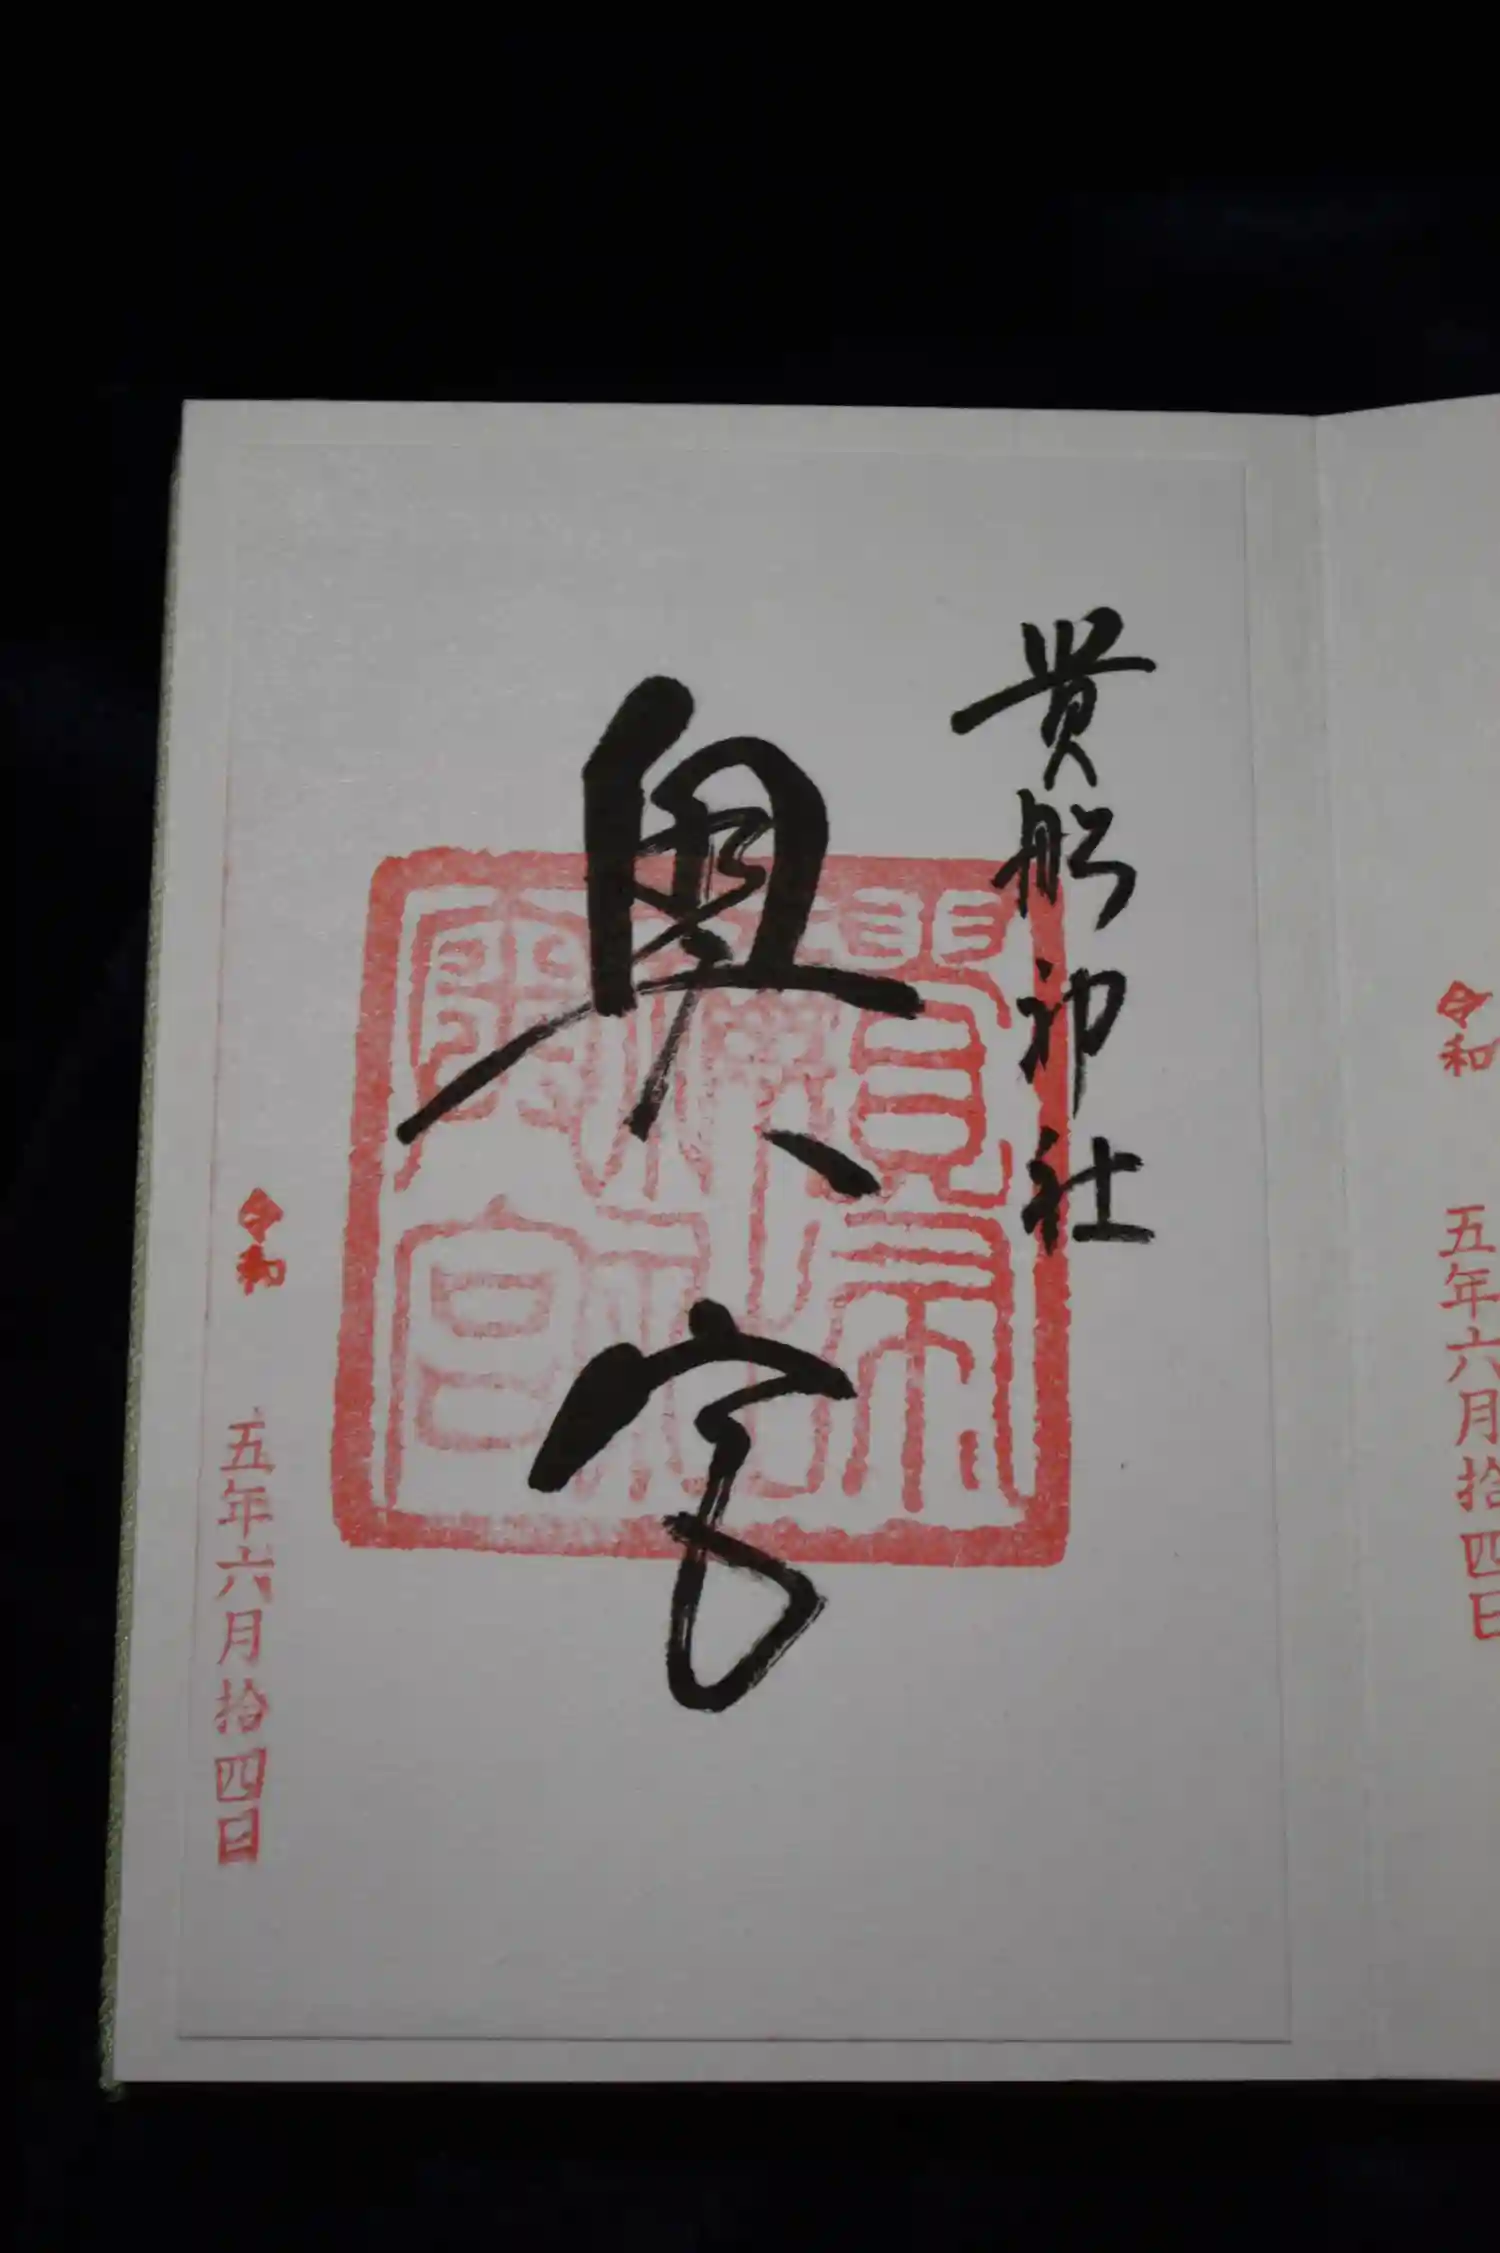 貴船神社
奥宮
令和 五年六月拾四日
令和 五年六月拾四日